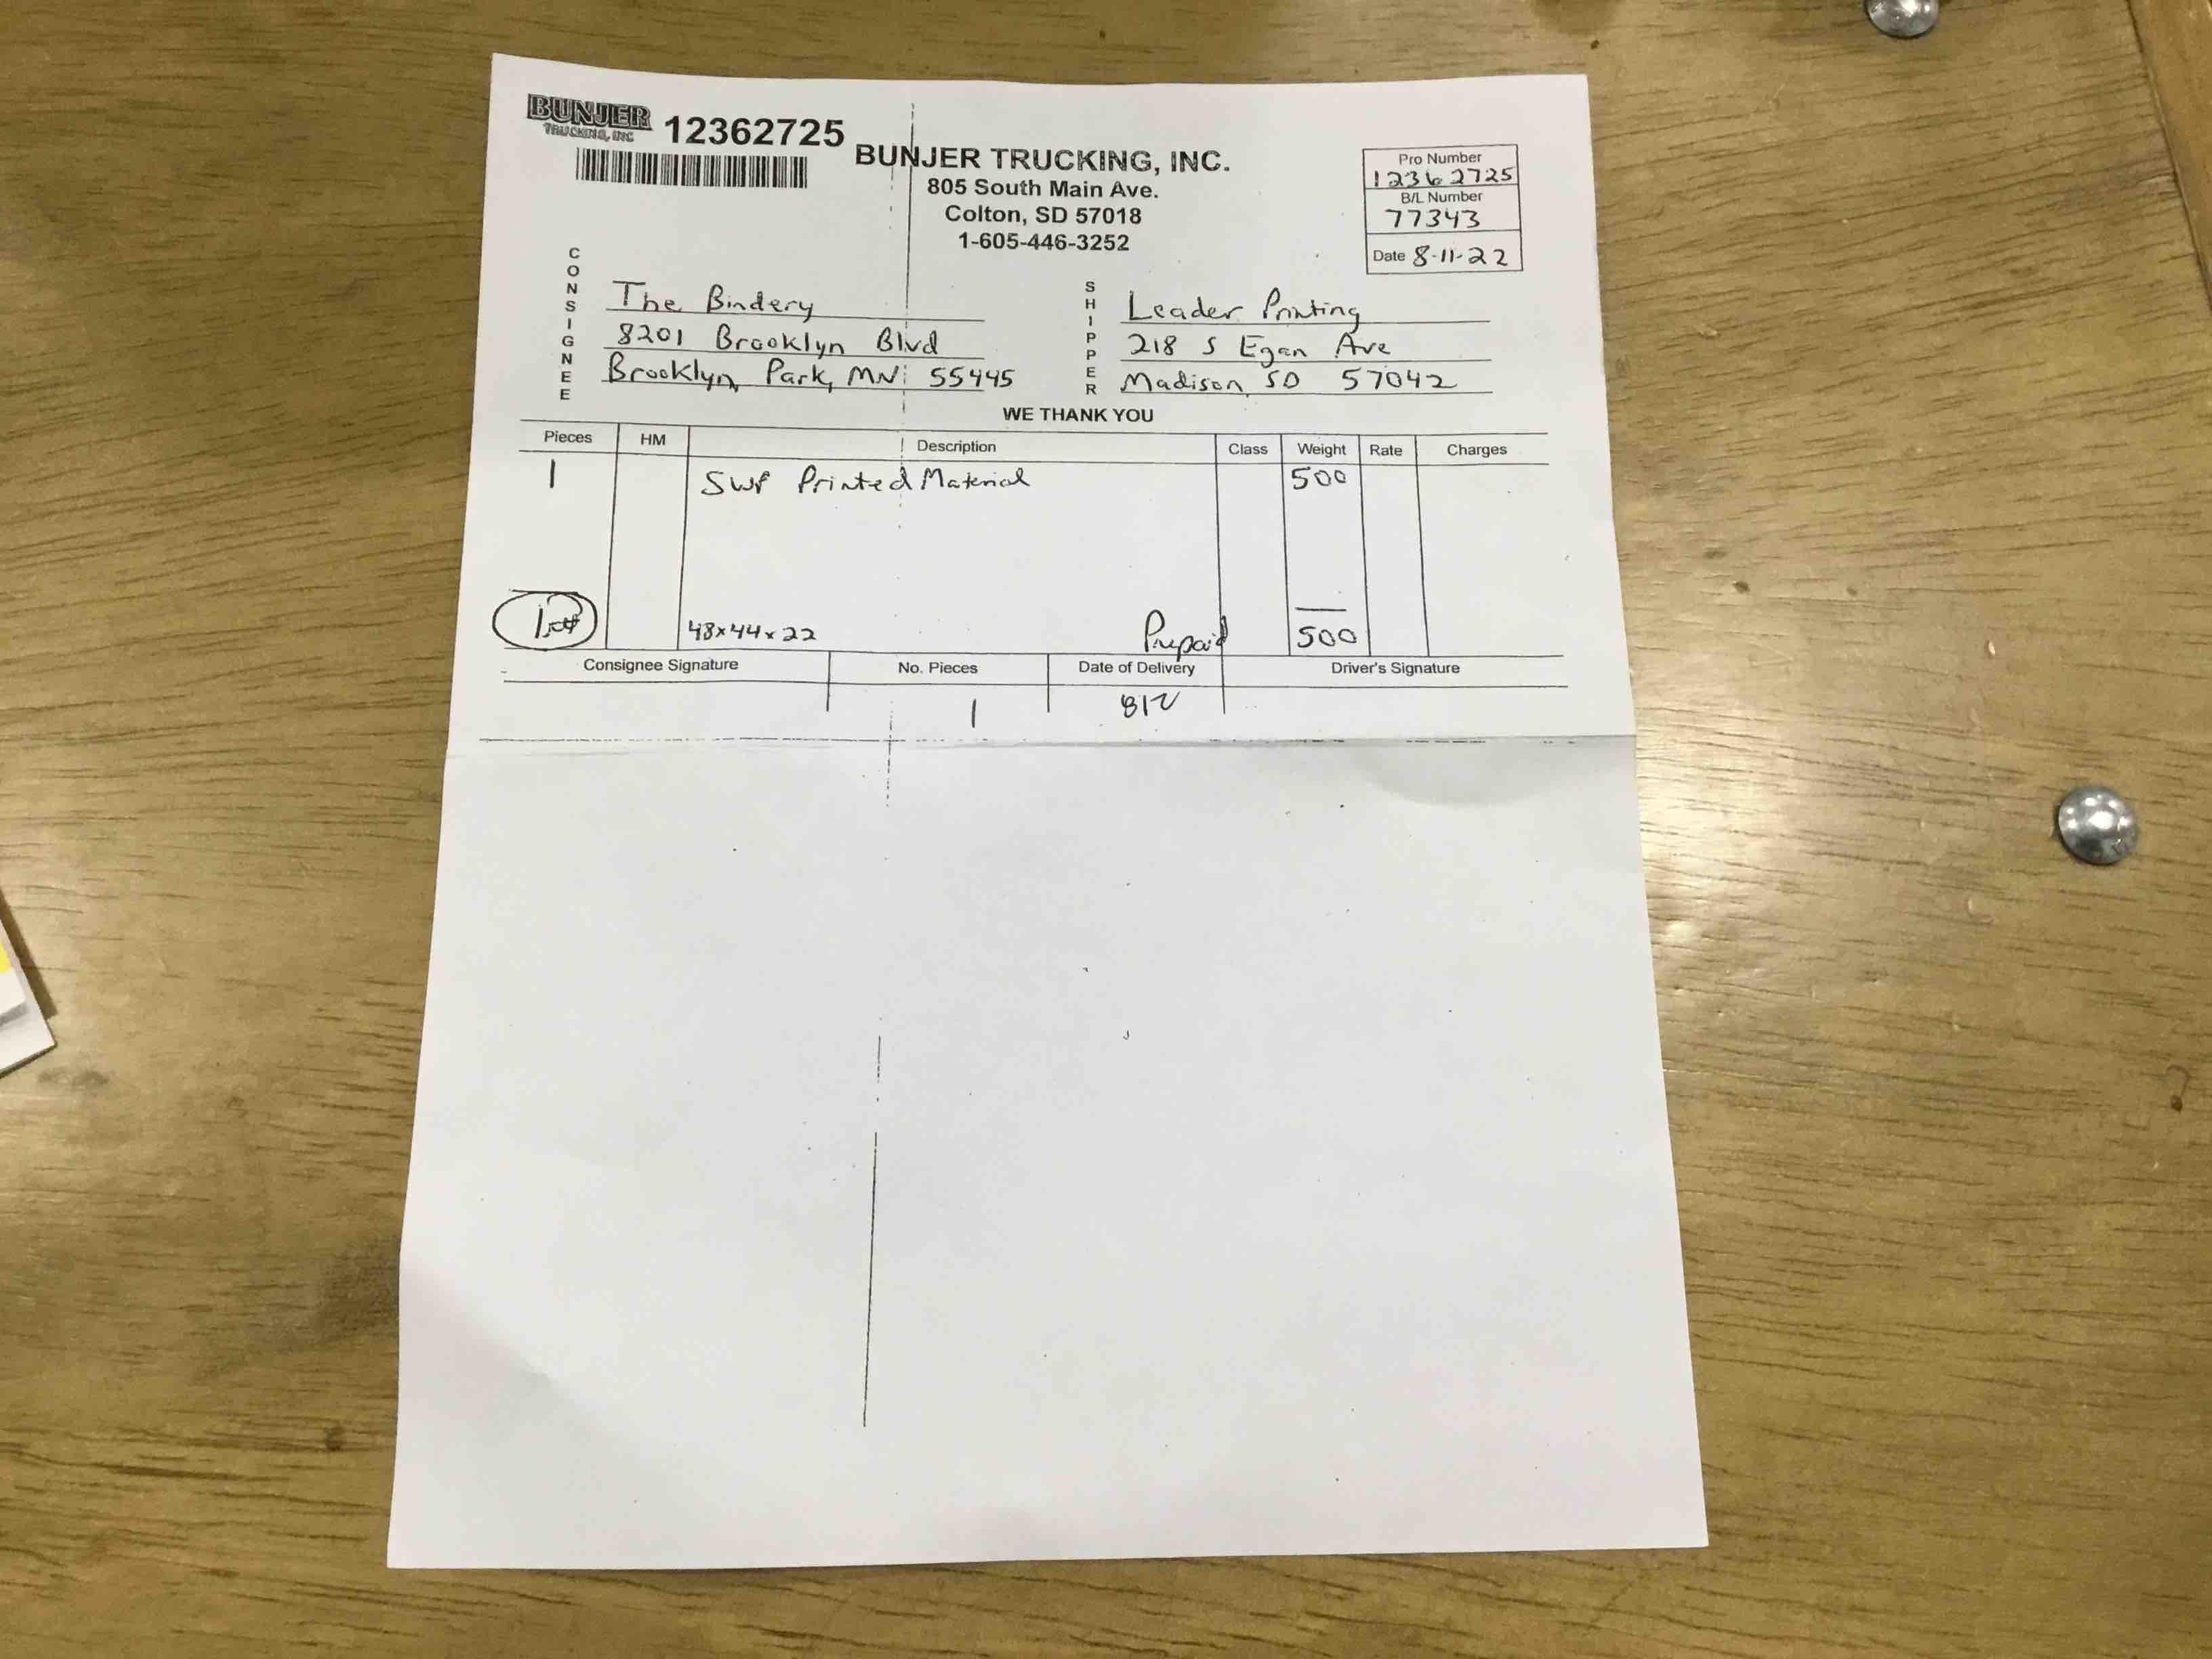 BUNJER
TRUCKING, INC
12362725
BUNJER TRUCKING, INC.
805 South Main Ave.
Colton, SD 57018
1-605-446-3252
Pro Number
12362725
B/L Number
77343
Date 8-11-22
CONSIGNEE
The Bindery
8201 Brooklyn Blvd
Brooklyn Park, MN 55445
SHIPPER
Leader Printing
218 S Egan Ave
Madison, SD 57042
WE THANK YOU
Pieces HM Description Class Weight Rate Charges
1 Printed Material 500
48x44x22 Prepaid 500
Consignee Signature No. Pieces Date of Delivery Driver's Signature
1 812